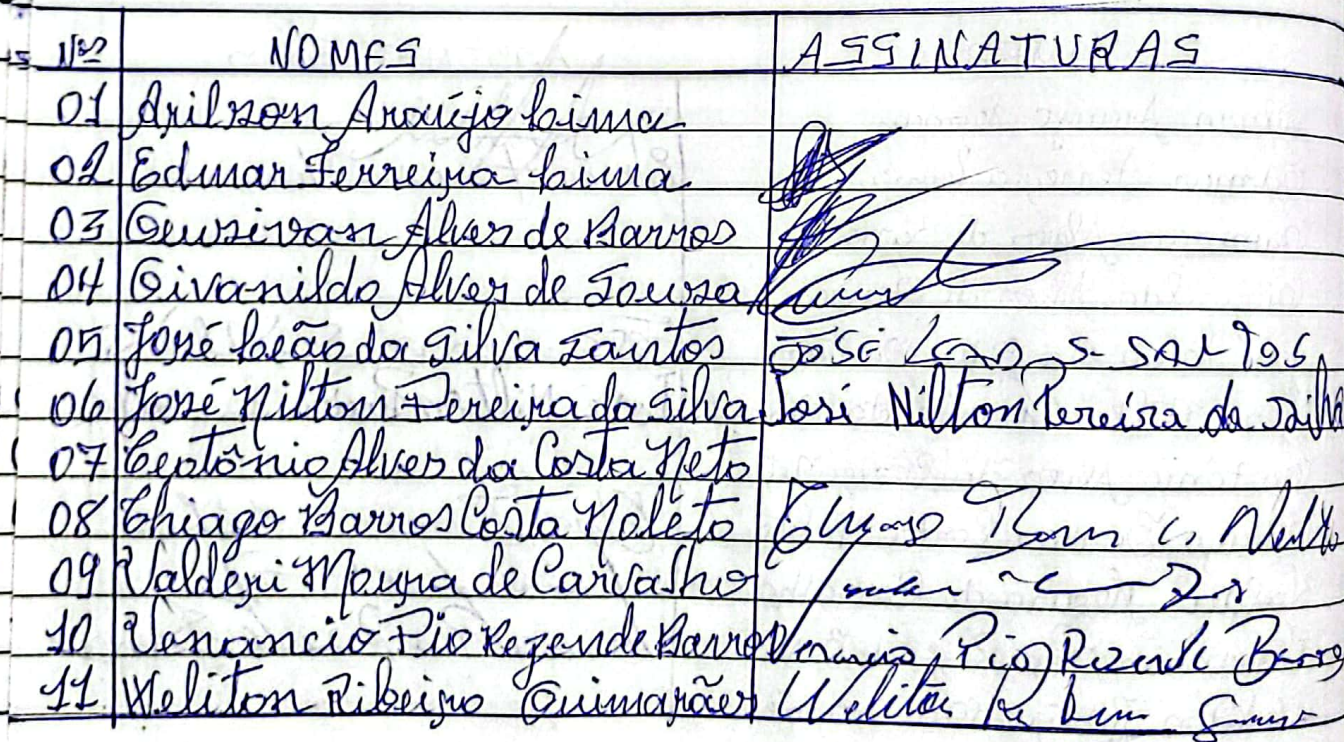 Nos NOMES ASSINATURAS
01 Arilson Araújo Lima
02 Edmar Ferreira Lima
03 Geusivan Alves de Barros
04 Givanildo Alves de Souza
05 José Leão da Silva Santos JOSÉ LEAO S. SANTOS
06 José Nilton Pereira da Silva José Nilton Pereira da Silva
07 Teotônio Alves da Costa Neto
08 Thiago Barros Costa Noleto
09 Valderi Moura de Carvalho
10 Venancio Pio Rezende Barros Venancio Pio Rezende Barros
11 Weliton Ribeiro Guimarães Weliton